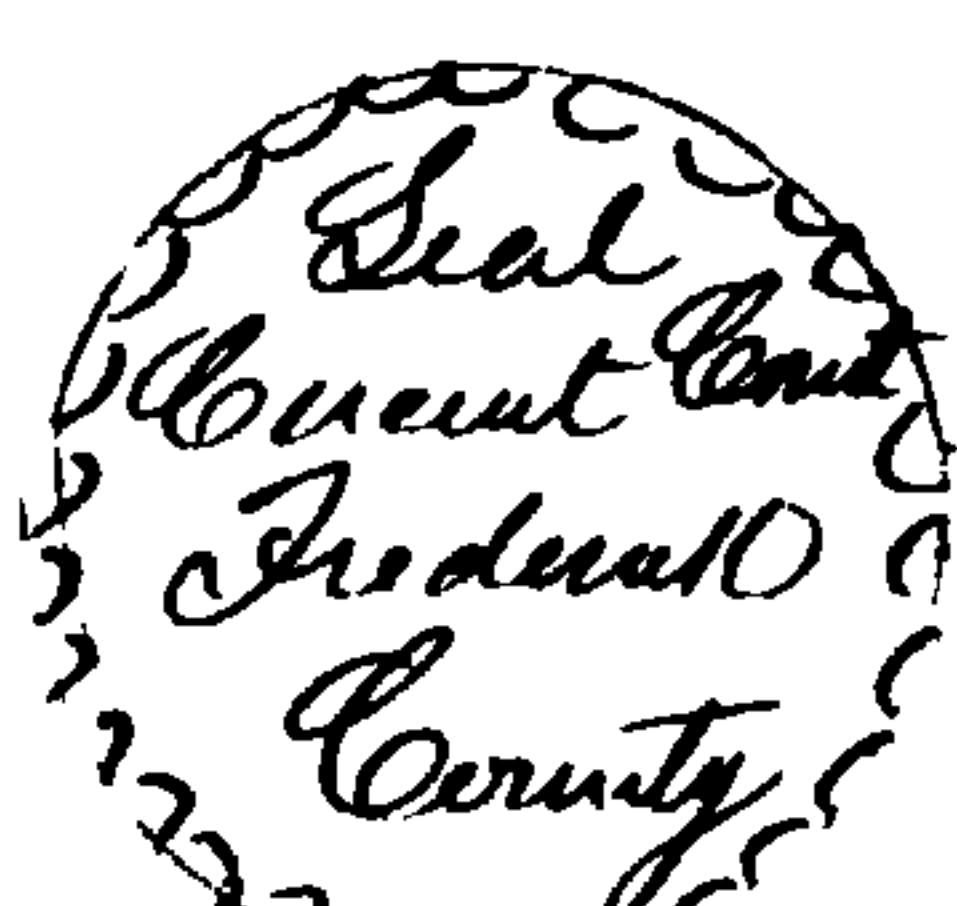 Seal
Circuit Court
Frederick
County